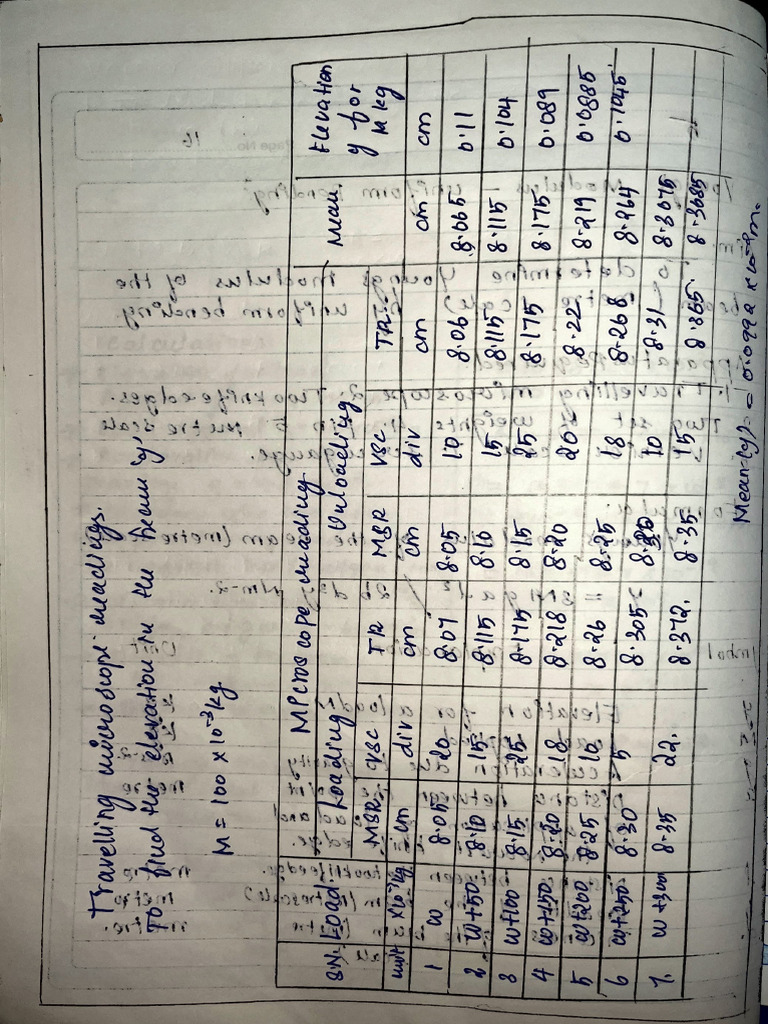 Travelling microscope readings.
To find the elevation in the beam 'y'
M = 100 x 10-3 kg
S.N. Load Microscope reading Mean Elevation y for M kg
Loading Unloading
MSR VSC TR MSR VSC TR
unit x10-3 kg cm div cm cm div cm cm cm
1 W 8.05 20 8.07 8.05 10 8.06 8.065 0.11
2 W+50 8.10 15 8.115 8.10 15 8.115 8.115 0.104
3 W+100 8.15 25 8.175 8.15 25 8.175 8.175 0.089
4 W+150 8.20 18 8.218 8.20 20 8.22 8.219 0.0885
5 W+200 8.25 10 8.26 8.25 18 8.268 8.264 0.1045
6 W+250 8.30 5 8.305 8.30 10 8.31 8.3075
7. W+300 8.35 22. 8.372. 8.35 15 8.365 8.3685
Mean (y) = 0.0992 x 10-2 m.